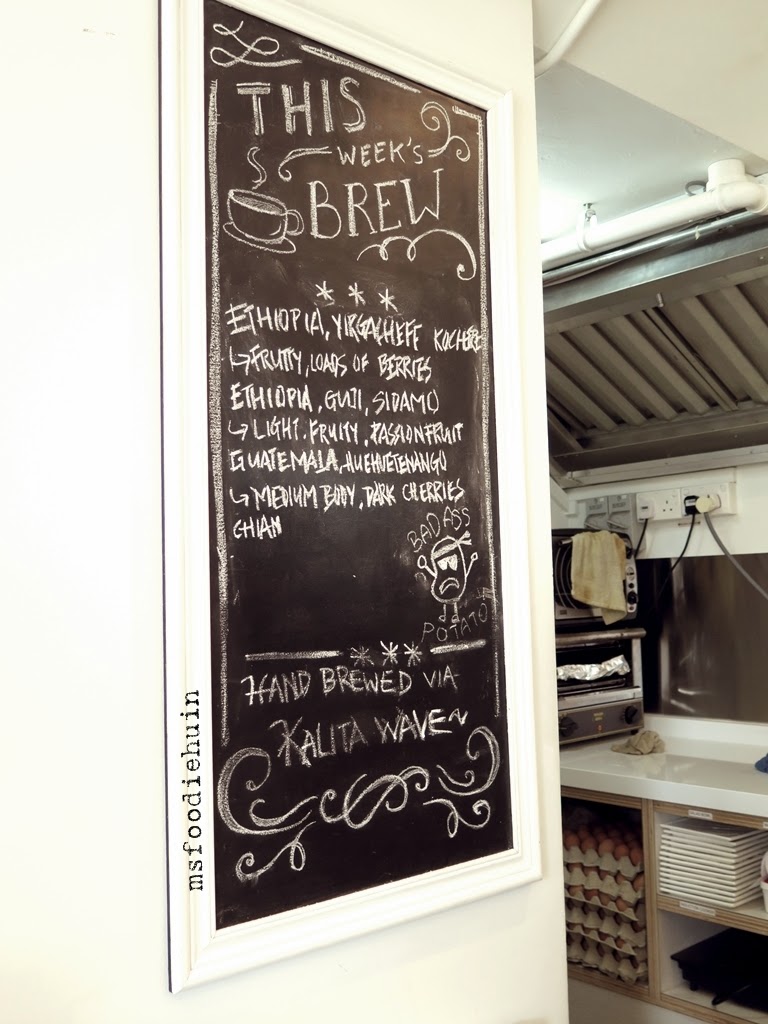 THIS
WEEK'S
BREW
* * *
ETHIOPIA, YIRGACHEFF KOCHERE
↳ FRUITY, LOADS OF BERRIES
ETHIOPIA, GUJI, SIDAMO
↳ LIGHT. FRUITY, PASSIONFRUIT
GUATEMALA, HUEHUETENANGO
↳ MEDIUM BODY, DARK CHERRIES
CHIAN
BADASS
POTATO
***
HAND BREWED VIA
KALITA WAVE~
msfoodiehuin